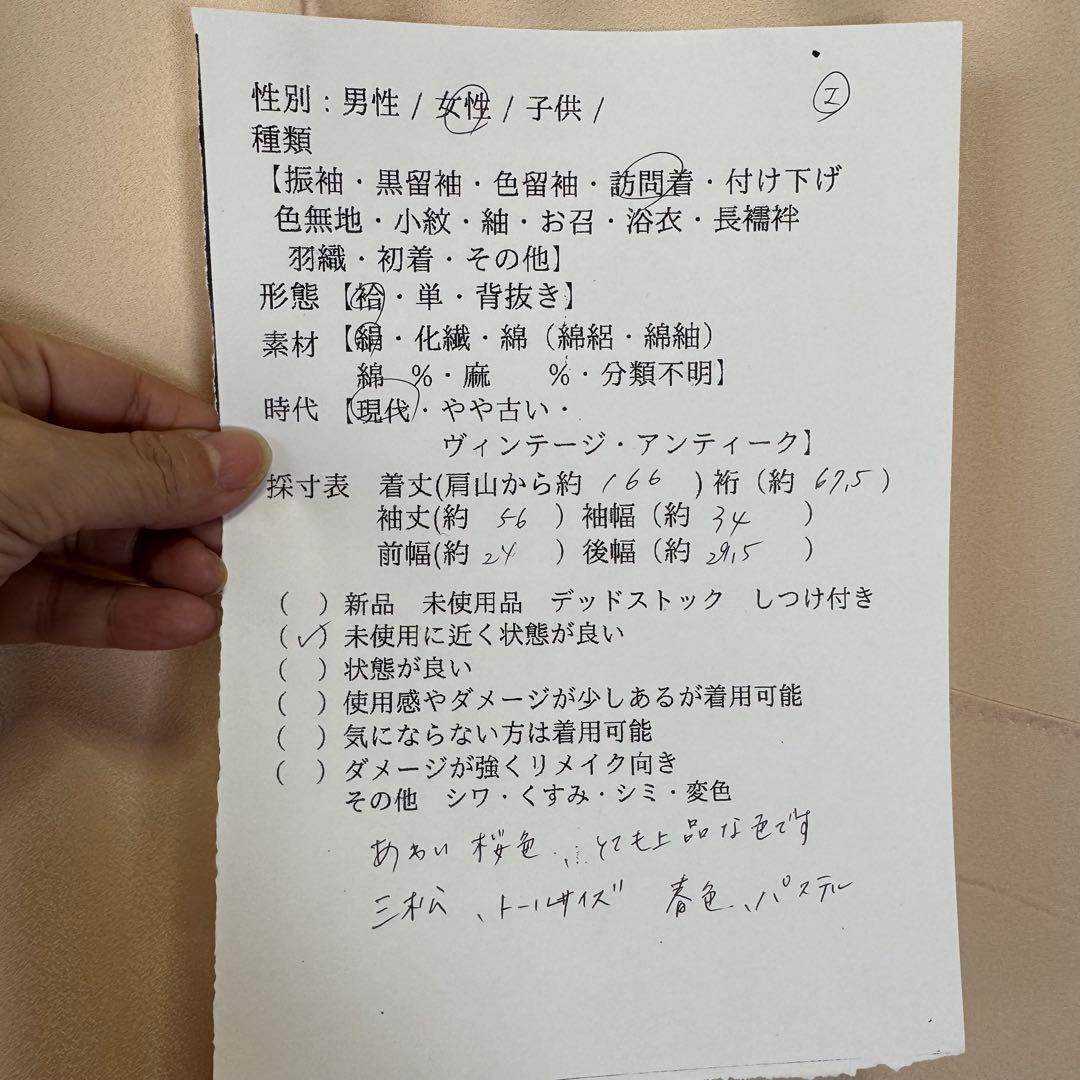 性別：男性 / 女性 / 子供 /
エ
種類
【振袖・黒留袖・色留袖・訪問着・付け下げ
色無地・小紋・紬・お召・浴衣・長襦袢
羽織・初着・その他】
形態【袷・単・背抜き】
素材【絹・化繊・綿（綿絽・綿紬）
綿　％・麻　　％・分類不明】
時代【現代・やや古い・
ヴィンテージ・アンティーク】
採寸表　着丈(肩山から約 166 ) 裄（約 67,5 ）
袖丈(約 56 ）袖幅（約 34 ）
前幅(約 24 ）後幅（約 29,5 ）
(　) 新品　未使用品　デッドストック　しつけ付き
(✓) 未使用に近く状態が良い
(　) 状態が良い
(　) 使用感やダメージが少しあるが着用可能
(　) 気にならない方は着用可能
(　) ダメージが強くリメイク向き
その他　シワ・くすみ・シミ・変色
あわい 桜色、とても上品な色です
三松、トールサイズ　春色、パステル